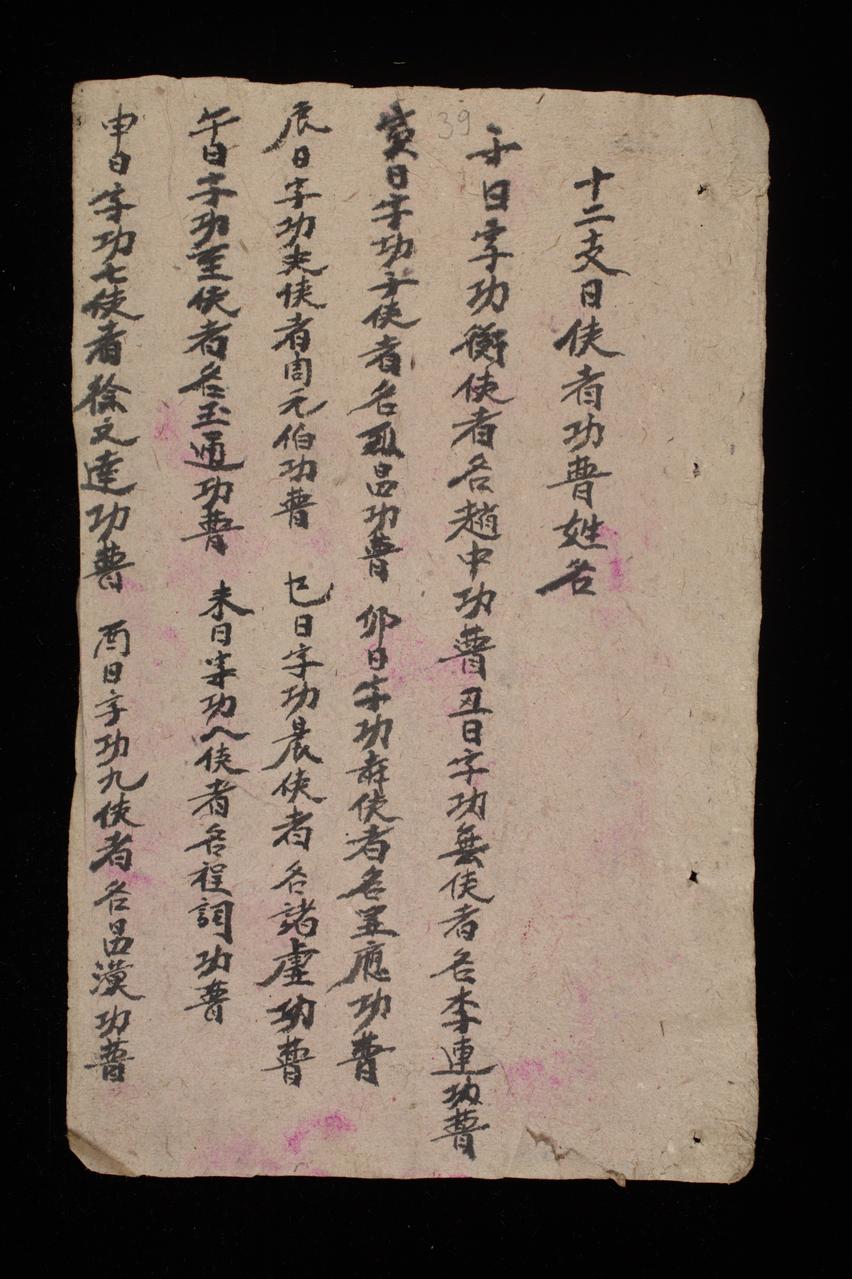 十二支日使者功曹姓名
子日字功衡使者名趙中功曹 丑日字功無使者名李連功曹
寅日字功子使者名 昌功曹 卯日字功 使者名 應功曹
辰日字功夫使者周元伯功曹 巳日字功晨使者名諸虛功曹
午日字功至使者名玉通功曹 未日字功八使者名程詞功曹
申日字功七使者徐文達功曹 酉日字功九使者名昌漢功曹
39